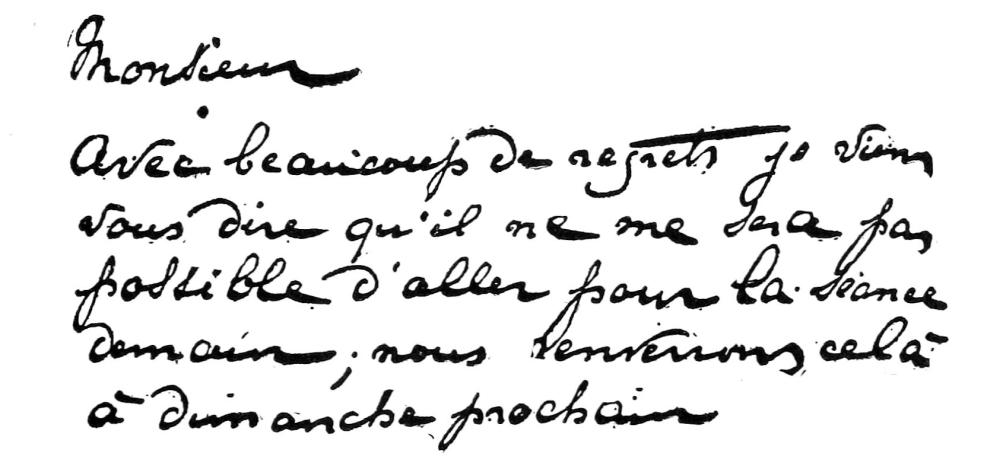 Monsieur
Avec beaucoup de regrets je viens
vous dire qu'il ne me sera pas
possible d'aller pour la séance
demain ; nous renverrons celà
à dimanche prochain